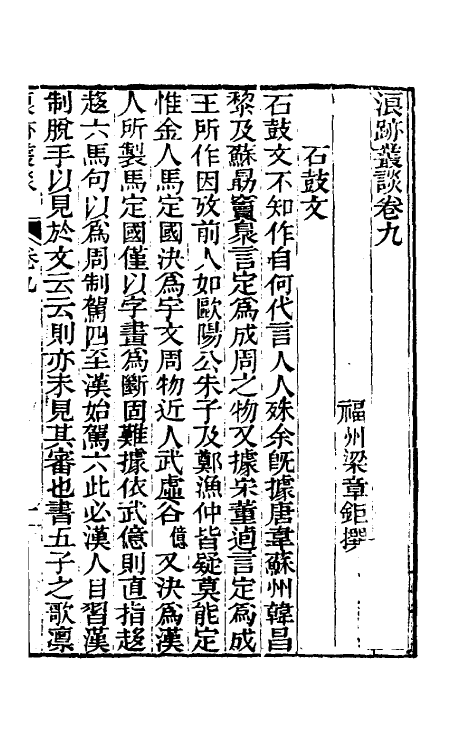 浪跡叢談卷九
福州梁章鉅撰
石鼓文
石鼓文不知作自何代言人人殊余旣據唐韋蘇州韓昌
黎及蘇勗竇臮言定爲成周之物又據宋董逌言定爲成
王所作因攷前人如歐陽公朱子及鄭漁仲皆疑莫能定
惟金人馬定國決爲宇文周物近人武虛谷億又決爲漢
人所製馬定國僅以字畫爲斷固難據依武億則直指趍
趍六馬句以爲周制駕四至漢始駕六此必漢人目習漢
制脫手以見於文云云則亦未見其審也書五子之歌凛
卷九